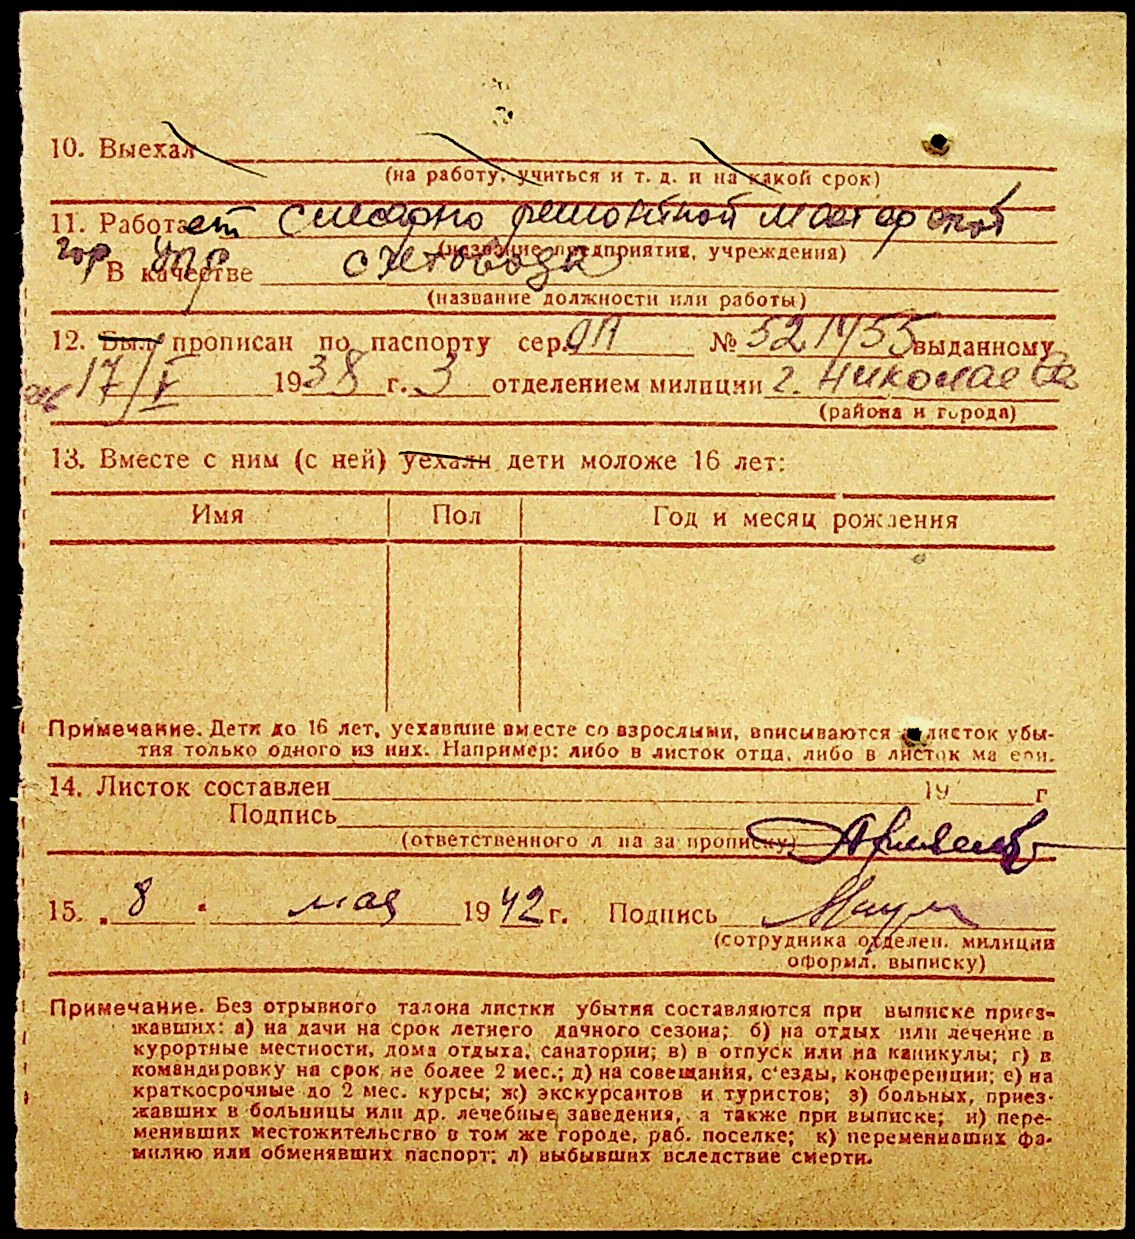 10. Выехал
(на работу, учиться и т. д. и на какой срок)
11. Работает слесарно ремонтной мастерской
(название предприятия, учреждения)
гор упр
В качестве счетовода
(название должности или работы)
12. Был прописан по паспорту сер. № 521755 выданному
17/V 1938 г. 3 отделением милиции г. Николаева
(района и города)
13. Вместе с ним (с ней) уехали дети моложе 16 лет:
Имя Пол Год и месяц рождения
Примечание. Дети до 16 лет, уехавшие вместе со взрослыми, вписываются в листок убы-
тия только одного из них. Например: либо в листок отца, либо в листок матери.
14. Листок составлен 19 г
Подпись
(ответственного лица за прописку)
15. „ 8 " мая 1942 г. Подпись
(сотрудника отделен. милиции
оформл. выписку)
Примечание. Без отрывного талона листки убытия составляются при выписке приез-
жавших: а) на дачи на срок летнего дачного сезона; б) на отдых или лечение в
курортные местности, дома отдыха, санатории; в) в отпуск или на каникулы; г) в
командировку на срок не более 2 мес.; д) на совещания, с'езды, конференции; е) на
краткосрочные до 2 мес. курсы; ж) экскурсантов и туристов; з) больных, приез-
жавших в больницы или др. лечебные заведения, а также при выписке; и) пере-
менивших местожительство в том же городе, раб. поселке; к) переменивших фа-
милию или обменявших паспорт; л) выбывших вследствие смерти.